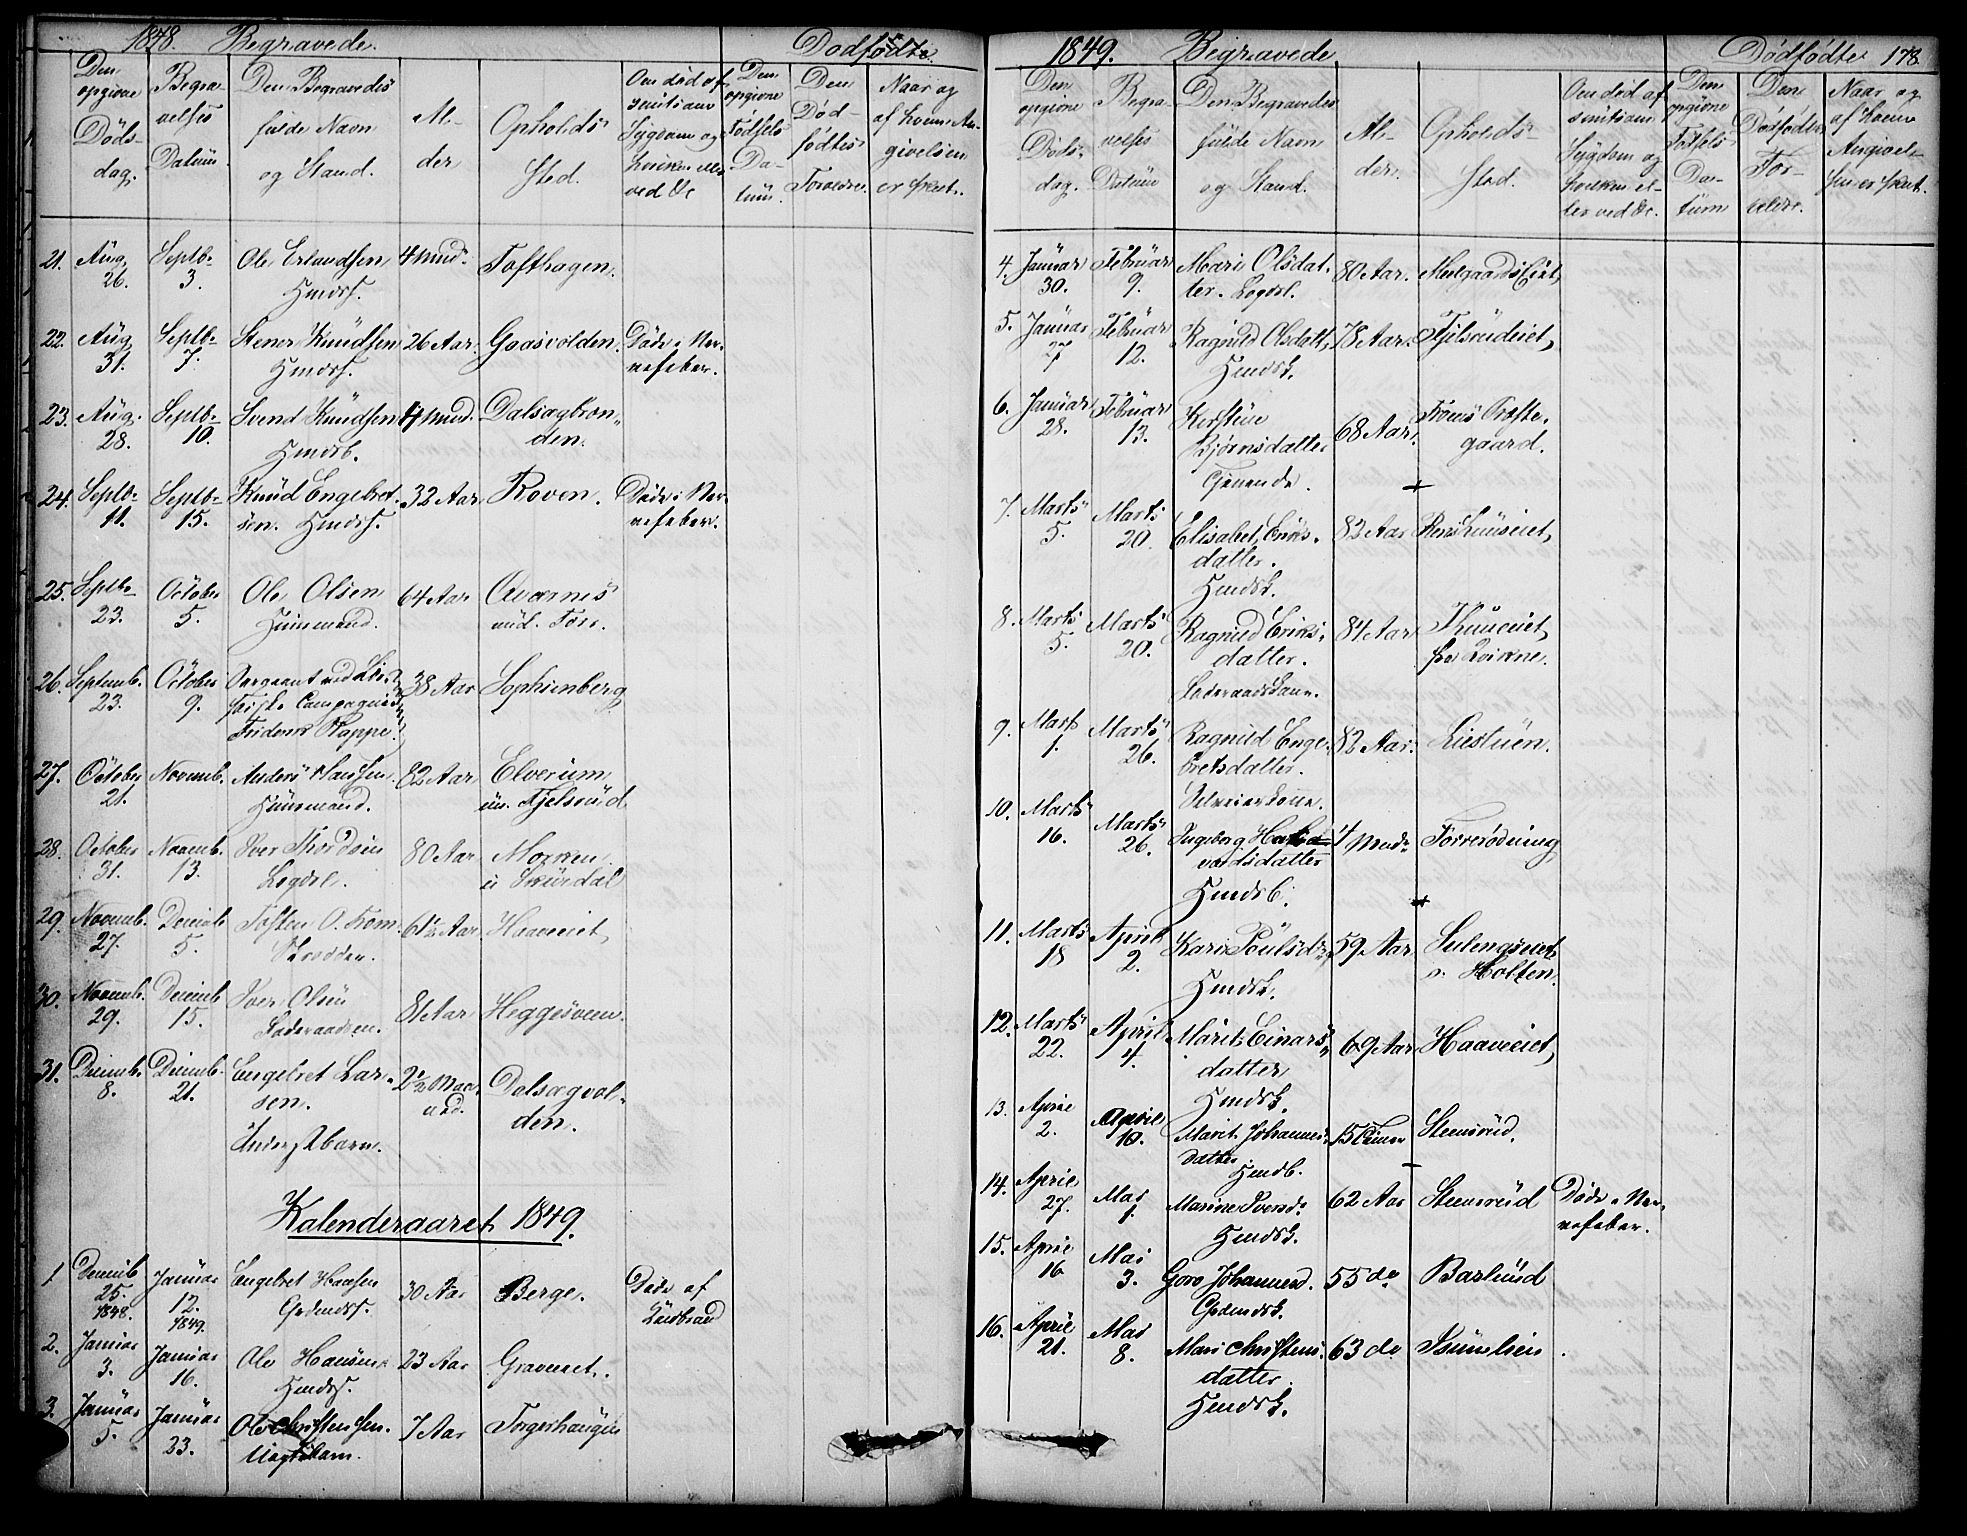 1848. Begravede. Dødfødte.
Den opgivne Døds-dag.
Begra-velses Datum.
Den Begravedes fulde Navn og Stand.
Al-der
Opholds Sted.
Om død af smitsom Sygdom og hvilken eller ved &c
Den opgivne Fødsels Da-tum.
Den Død-fødtes Forældre.
Naar og af hvem An-givelsen er skeet.
21. Aug. 26. Septb. 3. Ole Erlandsen Hmdss. 4 Mnd. Tofthagen.
22. Aug. 31. Septb. 7. Stener Knudsen Hmdss. 26 Aar. Gaasvolden. Døde i Ner-vefeber.
23. Aug. 28. Septb. 10. Svend Knudsen Hmdsb. 4 Mnd. Dalsægbron-den.
24. Septb. 11. Septb. 15. Knud Engebret-sen. Hmdss. 32 Aar Roven. Døde i Ner-vefeber.
25. Septb. 23. Octobr 5. Ole Olsen Huusmand. 64 Aar Qvarnes
26. Septemb. 23. October 9. Sergeant ved Compagnie Friderik Rappe. 38 Aar Sophienberg
27. October 21. Novemb. Anders Hansen Huusmand. 82 Aar Elverum un. Fjelsrud
28. October 31. Novemb. 13. Iver Thordsen Legdsl. 80 Aar Morken u Skurdal
29. Novemb. 27. Decemb 5. Tosten O. Skrædder. 61½ Aar Haaveeiet
30. Novemb. 29. Decemb 15. Iver Olsen Føderaadsm. 81 Aar Heggesveen.
31. Decemb. 8. Decemb. 21. Engebret Lar-sen. 2½ Maa-ned. Dalsægvol-den.
Kalenderaaret 1849.
1 Decemb 25. 1848. Januar 12. 1849. Engebret Hansen Grdmdss. 30 Aar Berge. Døde af
2. Januar 3. Januar 16. Ole Hansen Hmdss. 23 Aar Graveeiet.
3. Januar 5. Januar 23. Ole Christensen. Uægte Barn. 7 Aar Torgerhaugen
1849. Begravede Dødfødte 178.
Den opgivne Døds-dag.
Begra-velses Datum
Den Begravedes fulde Navn og Stand.
Al-der.
Opholds-Sted.
Om død af smitsom Sygdom og hvilken el-ler ved &c.
Den opgivne Fødsels Da-tum
Den Dødfødtes For-ældre.
Naar og af hvem Angivel-sen er skeet.
4. Januar 30. Februar 9. Mari Olsdat-ter. Legdsl. 80 Aar.
5. Januar 27 Februar 12. Ragnild Olsdatt. Hmdsk. 78 Aar. Fjelsrudeiet
6. Januar 28. Februar 13. Kirstine Bjørnsdatter Tjenende. 68 Aar. Froens Præste-gaard.
7. Marts 5. Marts 20. Elisabet Eriks-datter. Hmdsk. 82 Aar
8. Marts 5. Marts 20. Ragnild Eriks-datter. Føderaadskone. 84 Aar fra Qvikne.
9. Marts 1. Marts 26. Ragnild Enge-bretsdatter. 82 Aar. Liestuen.
10. Marts 16. Marts 26. Ingeborg vardsdatter Hmdsb. 4 Mndr Forrerødning
11. Marts 18 April 2. Kari Poulsdr Hmdsk. 59 Aar Sulengseiet v. Holten.
12. Marts 22. April 4. Marit Einars-datter Hmdsk. 69 Aar Haaveeiet
13. April 2. April 10. Marit Johannes-datter Hmdb. 15 Timer Steensrud.
14. April 27. Mai 1. Marine Svensd. Hmdsk. 62 Aar Steensrud Døde i Ner-vefeber.
15. April 16 Mai 3. Goro Johannesd. Grdmdsk. 55 do Barlund
16. April 21. Mai 8. Mari Christens-datter. Hmdsk. 63 do